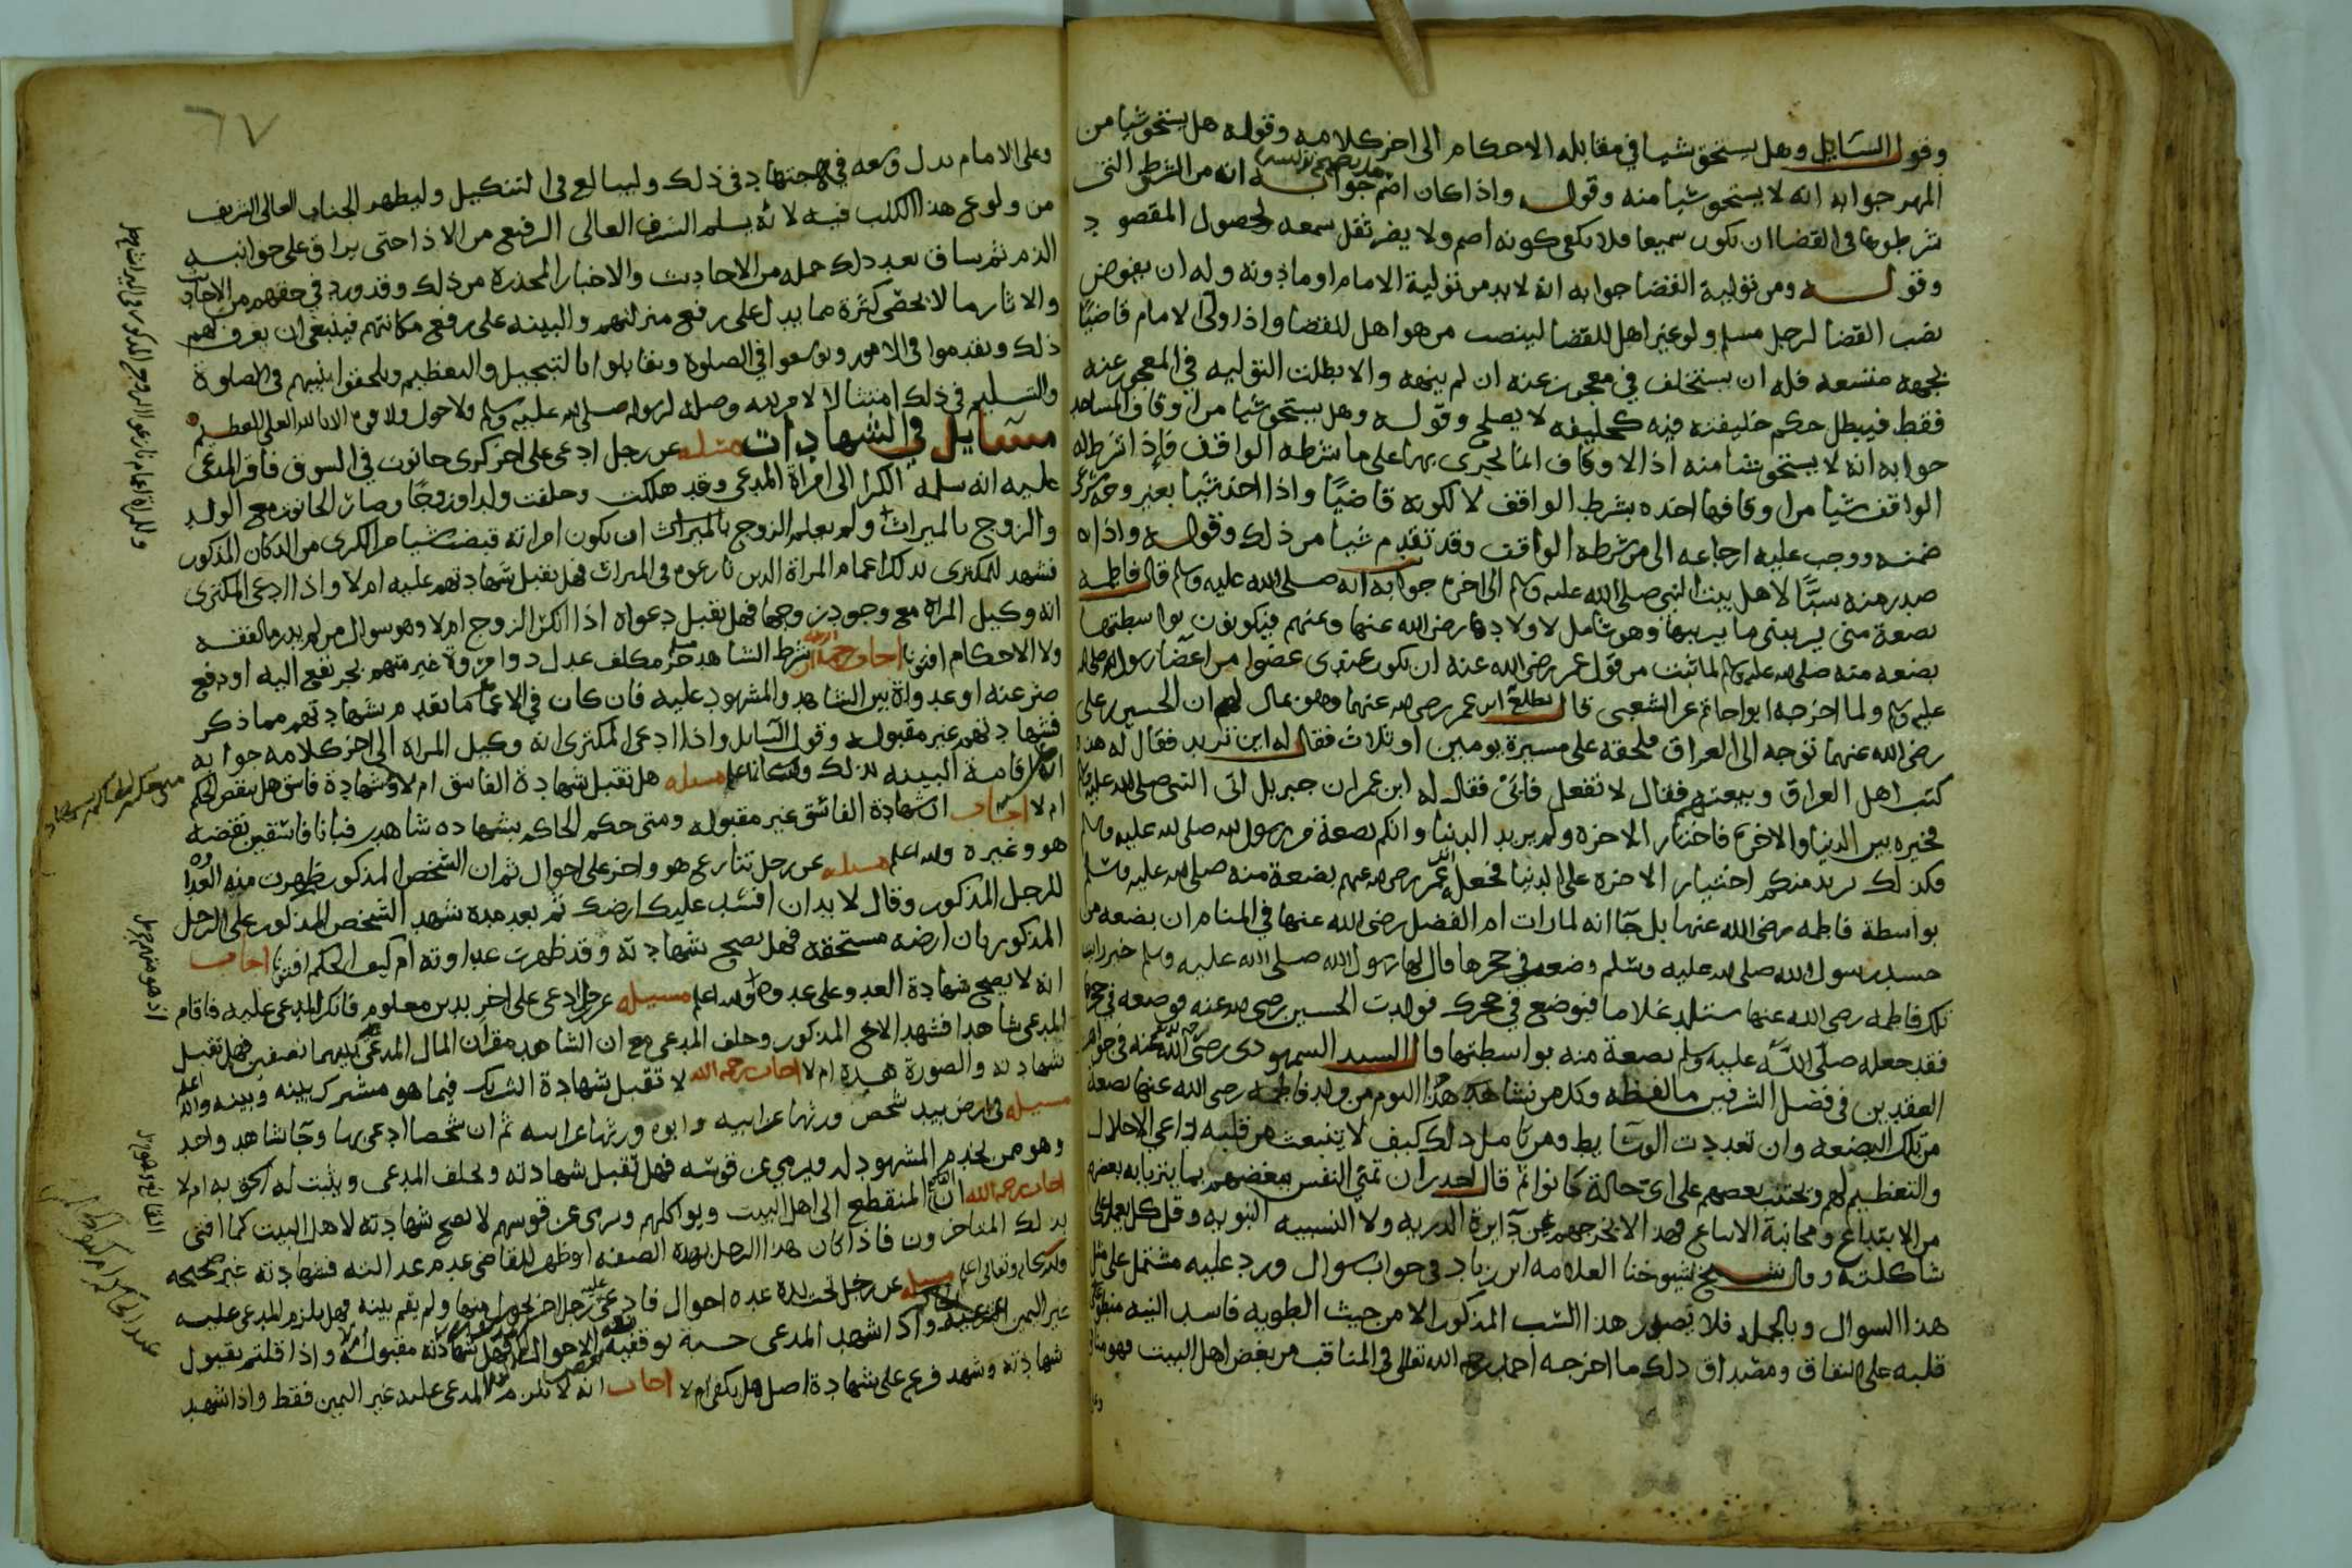 وقول السايل وهل يستحق شيا في مقابله الاحكام الى اخر كلامه وقوله هل يستحق شيا من
المهر جوابه انه لا يستحق شيا منه وقوله واذا كان اصم هل يصح توليته جوابه انه من الشرط التي
شرطوها في القضا ان يكون سميعا فلا يكفي كونه اصم ولا يضر ثقل سمعه لحصول المقصود
وقوله ومن تولية القضا جوابه انه لا بد من تولية الامام او ماذونه وله ان يفوض
نصب القضا لرجل مسلم ولو غير اهل للقضا لينصب من هو اهل للقضا واذا ولى الامام قاضيا
بجهه متسعه فله ان يستخلف في معجوز عنه ان لم ينهه والا بطلت التوليه في المعجوز عنه
فقط فيبطل حكم خليفته فيه كخليفه لا يصلح وقوله وهل يستحق شيا من اوقاف المساجد
جوابه انه لا يستحق شيا منه اذ الاوقاف انما تجرى بها على ما شرطه الواقف فاذا شرط له
الواقف شيا من اوقافها اخذه بشرط الواقف لا لكونه قاضيا واذا اخذ شيا بغير وجه شرعي
ضمنه ووجب عليه ارجاعه الى من شرطه الواقف وقد تقدم شيا من ذلك وقوله واذا
صدر منه سبا لاهل بيت النبي صلى الله عليه وسلم الى اخره جوابه انه صلى الله عليه وسلم قال فاطمه
بضعة مني يريبني ما يريبها وهو شامل لاولادها رضي الله عنها وعنهم فيكونون بواسطتها
بضعه منه صلى الله عليه وسلم لما ثبت من قول عمر رضي الله عنه ان يكون عندي عضوا من اعضا رسول الله صلى الله
عليه وسلم ولما اخرجه ابو حاتم عن الشعبي قال بلغ ابن عمر رضي الله عنهما وهو بمال لهم ان الحسين بن علي
رضي الله عنهما توجه الى العراق فلحقه على مسيرة يومين او ثلاث فقال له اين تريد فقال له هذه
كتب اهل العراق وبيعتهم فقال لا تفعل فابى فقال له ابن عمر ان جبريل اتى النبي صلى الله عليه وسلم
فخيره بين الدنيا والاخره فاختار الاخره ولم يريد الدنيا وانكم بضعة من رسول الله صلى الله عليه وسلم
فكذلك يريد منكم اختيار الاخره على الدنيا فجعل ابن عمر رضي الله عنهم بضعة منه صلى الله عليه وسلم
بواسطة فاطمه رضي الله عنها بل جا انه لما رات ام الفضل رضي الله عنها في المنام ان بضعه من
جسد رسول الله صلى الله عليه وسلم وضعت في حجرها قال لها رسول الله صلى الله عليه وسلم خير رايت
تلد فاطمه رضي الله عنها ستلد غلاما فيوضع في حجرك فولدت الحسين رضي الله عنه فوضعه في حجرها
فقد جعله صلى الله عليه وسلم بضعة منه بواسطتها قال السيد السمهودي رضي الله عنه في جواهر
العقدين في فضل الشرفين ما لفظه وكل من نشاهد هذا اليوم من ولد فاطمه رضي الله عنها بضعة
من تلك البضعه وان تعددت الوسايط ومن تامل ذلك كيف لا ينبعث من قلبه داعي الاجلال
والتعظيم لهم ويجتنب بعضهم على اى حالة كانوا ثم قال
من الابتداع ومجانبة الاتباع فهذا لا يخرجهم عن دايرة الذريه ولا النسبه النبويه وقل كل يعمل على
شاكلته وقال شيخ شيوخنا العلامه ابن زياد في جواب سوال ورد عليه مشتمل على مثل
هذا السوال وبالجمله فلا يصدر هذا السب المذكور الا من خبيث الطويه فاسد النيه منطو
قلبه على النفاق ومصداق ذلك ما اخرجه احمد رحمه الله تعالى في المناقب من بغض اهل البيت فهو منافق
٦٧
وعلى الامام بذل وسعه في جهتها في ذلك وليبالغ في التنكيل وليطهر الجناب العالي الشريف
من ولوغ هذا الكلب فيه لانه يسلم الشرف العالي الرفيع من الاذا حتى يراق على جوانبه
الدم ثم ساق بعد ذلك جمله من الاحاديث والاخبار المحذره من ذلك وقد ورد في حقهم من الاحاديث
والاثار ما لا يحصى كثرة مما يدل على رفيع منزلتهم والبينه على رفيع مكانتهم فينبغي ان يعرف لهم
ذلك ويقدموا في الامور ويوسعوا في الصلوة ويقابلوا بالتبجيل والتعظيم ويلحقوا بنبيهم في الصلوة
والتسليم في ذلك امتثالا لامر ربه وصلة لرسوله صلى الله عليه وسلم ولا حول ولا قوة الا بالله العلي العظيم
مسايل في الشهادات مسله عن رجل ادعى على اخر كرى حانوت في السوق فاقر المدعى
عليه انه سلمه الكرا الى امراة المدعي وقد هلكت وخلفت ولدا وزوجا وصار الحانوت مع الولد
والزوج بالميراث ولم يعلم الزوج بالميراث ان يكون امراته قبضت شيا من الكرى من الدكان المذكور
فشهد للمكتري بذلك اعمام المراة الذين نازعوه في الميراث فهل يقبل شهادتهم عليه ام لا واذا ادعى المكترى
انه وكيل المراه مع وجود زوجها فهل تقبل دعواه اذا انكر الزوج ام لا وهو سوال من لم يدر ما الفقه
ولا الاحكام افتونا اجاب رحمه الله شرط الشاهد حر مكلف عدل ذو امروة غير متهم بجر نفع اليه او دفع
ضر عنه او عداوة بين الشاهد والمشهود عليه فان كان في الاعمام ما يقدم شهادتهم مما ذكر
فشهادتهم غير مقبوله وقول السايل واذا ادعى المكترى انه وكيل المراه الى اخر كلامه جوابه
انه اقامة البينه بذلك والله اعلم مسله هل تقبل شهادة الفاسق ام لا وشهادة فاسق هل ينقض الحكم
ام لا اجاب ان شهادة الفاسق غير مقبوله ومتى حكم الحاكم بشهاده شاهدين فبانا فاسقين نقضه
هو وغيره والله اعلم مسله عن رجل تنازع هو واخر على احوال ثم ان الشخص المذكور ظهرت منه العداوه
للرجل المذكور وقال لا بد ان افسد عليك ارضك ثم بعد مده شهد الشخص المذكور على الرجل
المذكور بان ارضه مستحقه فهل يصح شهادته وقد ظهرت عداوته ام كيف الحكم افتونا اجاب
انه لا يصح شهادة العدو على عدوه والله اعلم مسيله عن رجل ادعى على اخر بدين معلوم فانكر المدعى عليه فاقام
المدعي شاهدا فشهد الاخ المذكور وحلف المدعي مع ان الشاهد مقر ان المال المدعى بينهما نصفين فهل تقبل
شهادته والصورة هذه ام لا اجاب رحمه الله لا تقبل شهادة الشريك فيما هو مشترك بينه وبينه والله اعلم
مسيله في ارض بيد شخص ورثها عن ابيه وابوه ورثها عن ابيه ثم ان شخصا ادعى بها وجا شاهد واحد
وهو ممن يخدم المشهود له ويرمي عن قوسه فهل تقبل شهادته ويحلف المدعي ويثبت له الحق به ام لا
اجاب رحمه الله ان المنقطع الى اهل البيت ويواكلهم ويرمى عن قوسهم لا يصح شهادته لاهل البيت كما افتى
بذلك المتاخرون فاذا كان هذا الرجل بهذه الصفه او ظهر للقاضي عدم عدالته فشهادته غير صحيحه
والله سبحانه وتعالى اعلم مسله عن رجل تحت يده عده احوال فادعى عليه رجل اخر ولم يقم بينه فهل يلزم المدعى عليه
غير اليمين واذا اشهد المدعي حسبة فهل شهادته مقبوله ام لا واذا قلتم بقبول
شهادته وشهد فرع على شهادة اصل هل يكفي ام لا اجاب انه لا يلزم المدعى عليه غير اليمين فقط واذا شهد